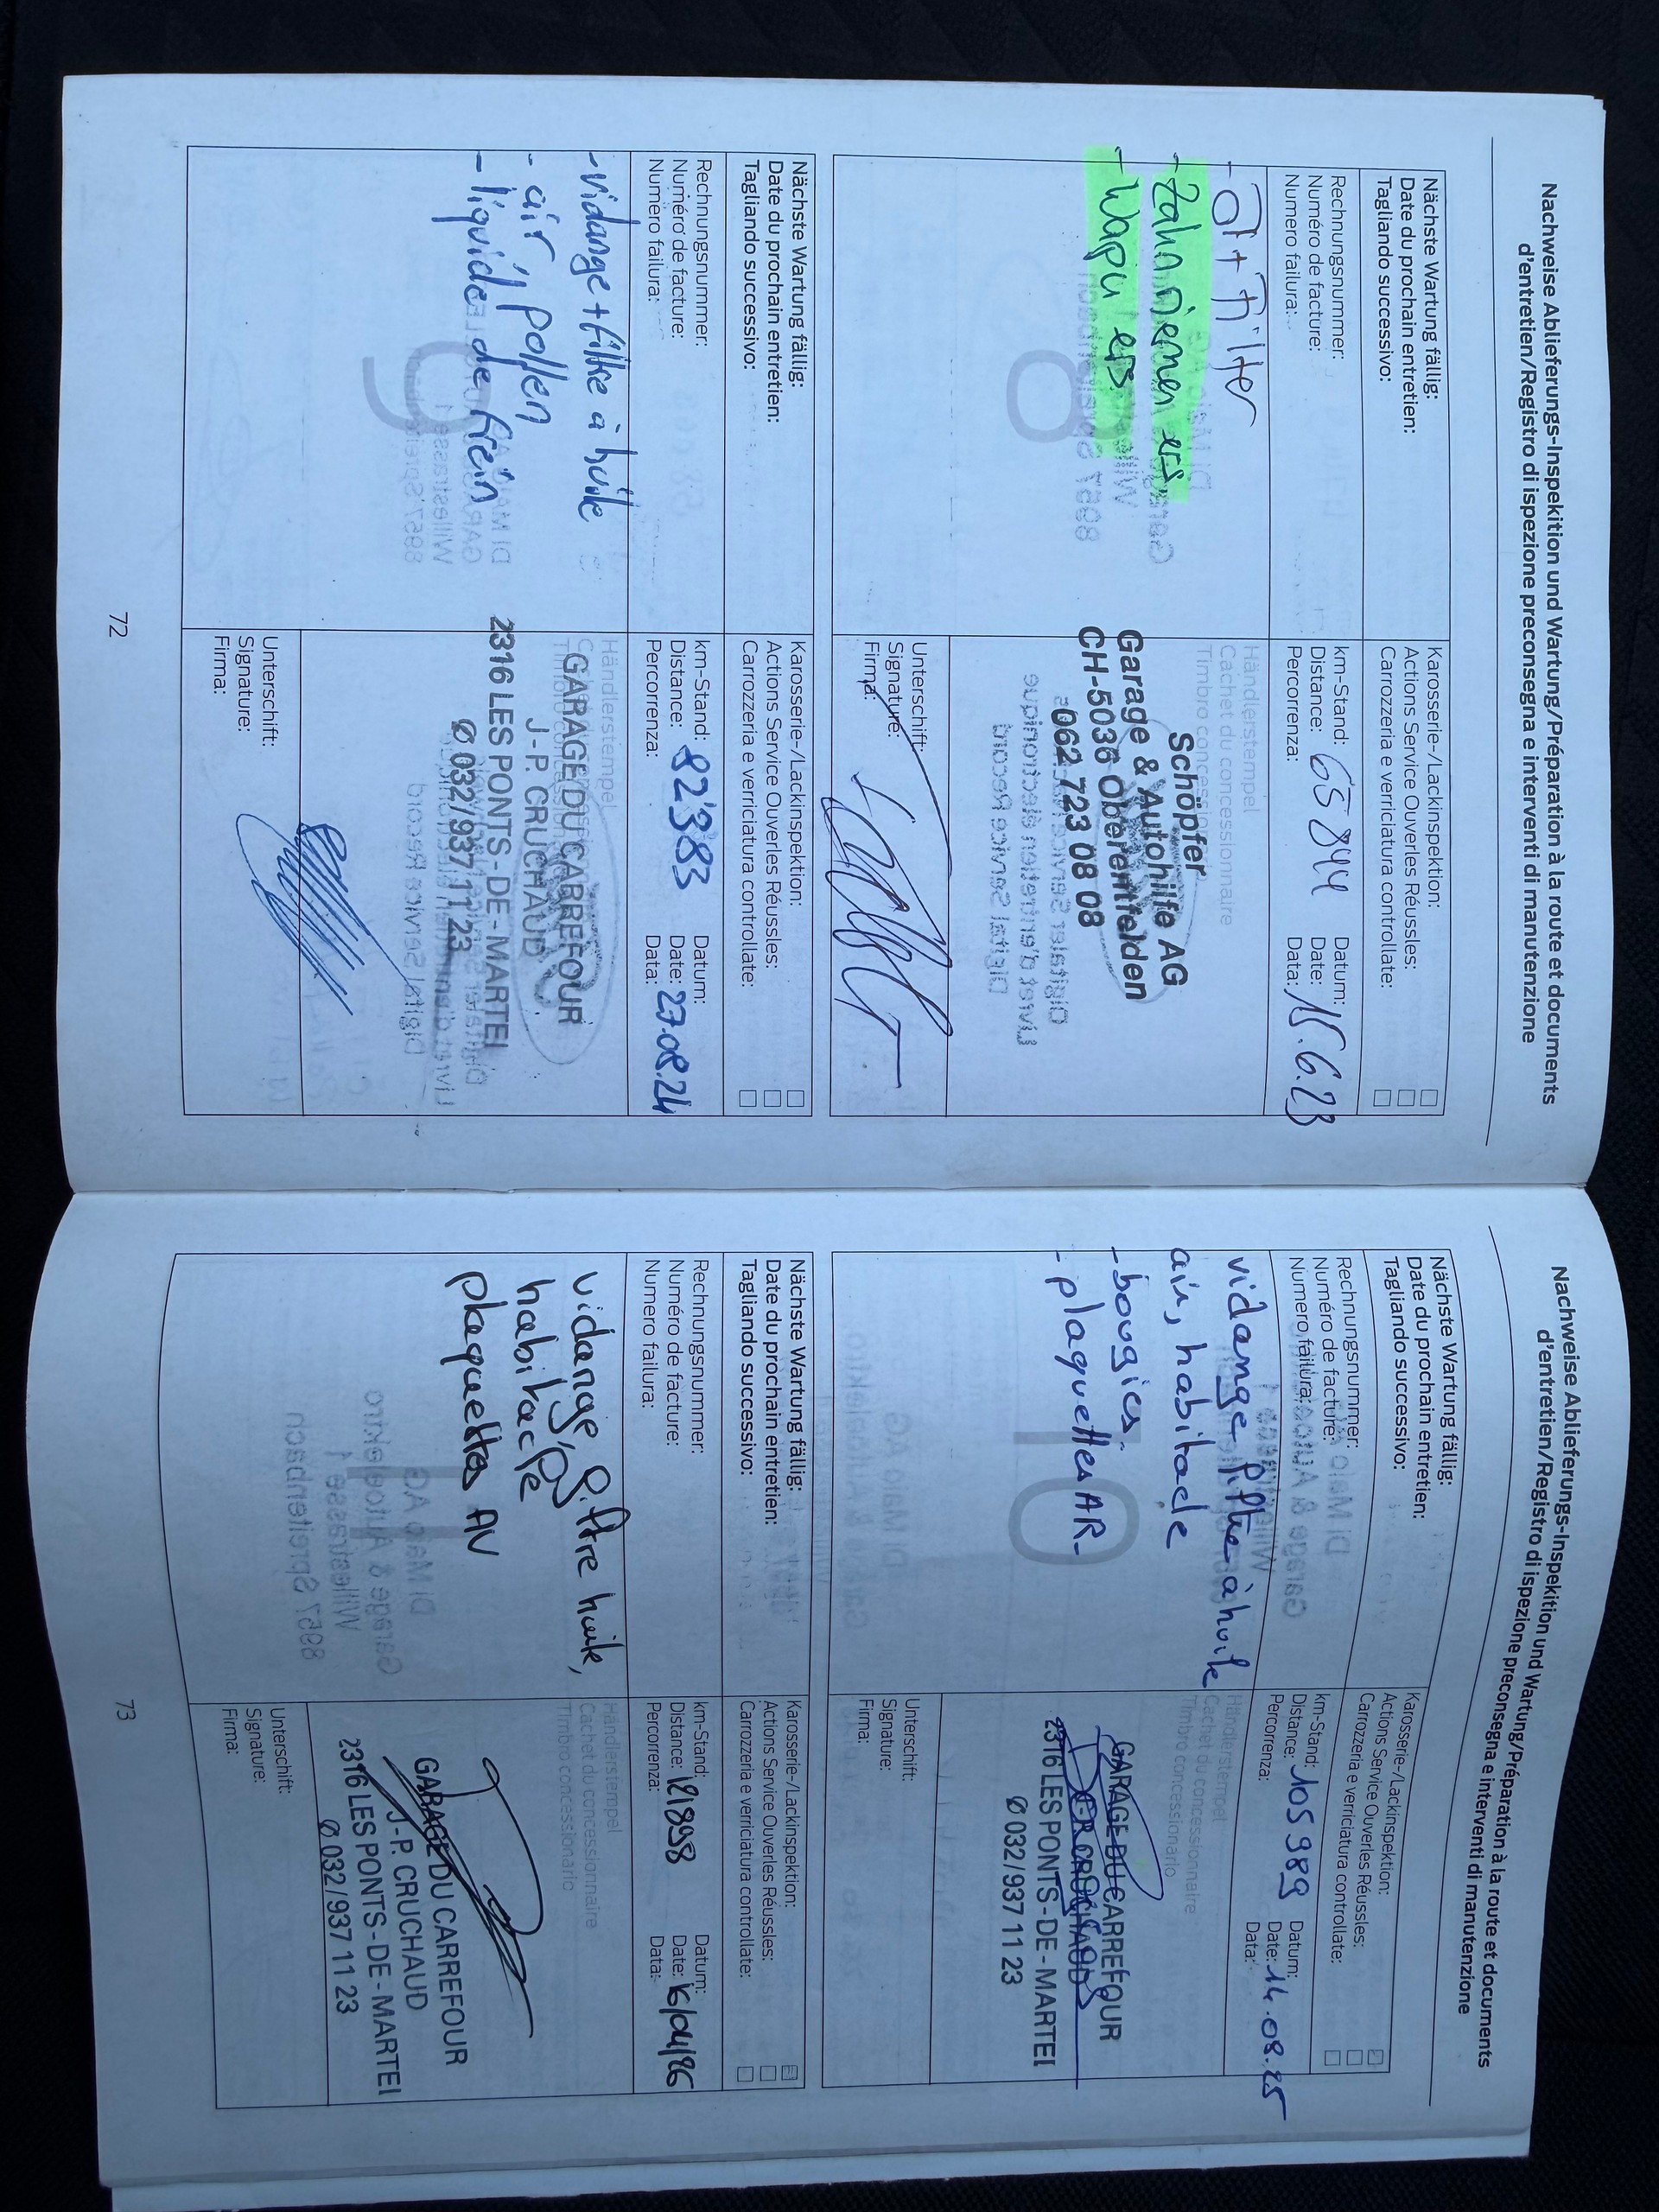 Nachweise Ablieferungs-Inspekition und Wartung/Préparation à la route et documents
d'entretien/Registro di ispezione preconsegna e interventi di manutenzione
Nächste Wartung fällig:
Date du prochain entretien:
Tagliando successivo:
Karosserie-/Lackinspektion:
Actions Service Ouverles Réussles:
Carrozzeria e verriciatura controllate:
Rechnungsnummer:
Numéro de facture:
Numero failura:
km-Stand:
Distance: 65 844
Percorrenza:
Datum:
Date: 15.6.23
Data:
- Öl + Filter
- Zahnriemen ers
- Wapu ers
8
Händlerstempel
Cachet du concessionnaire
Timbro concessionario
Schöpfer
Garage & Autohilfe AG
CH-5036 Oberentfelden
062 723 08 08
Unterschift:
Signature:
Firma:
Nächste Wartung fällig:
Date du prochain entretien:
Tagliando successivo:
Karosserie-/Lackinspektion:
Actions Service Ouverles Réussles:
Carrozzeria e verriciatura controllate:
Rechnungsnummer:
Numéro de facture:
Numero failura:
km-Stand:
Distance: 82'383
Percorrenza:
Datum:
Date: 27.08.24
Data:
- vidange + filtre à huile
- air, pollen
- liquide de frein
9
Händlerstempel
GARAGE DU CARREFOUR
J-P. CRUCHAUD
2316 LES PONTS-DE-MARTEL
Ø 032/937 11 23
Unterschift:
Signature:
Firma:
72
Nachweise Ablieferungs-Inspekition und Wartung/Préparation à la route et documents
d'entretien/Registro di ispezione preconsegna e interventi di manutenzione
Nächste Wartung fällig:
Date du prochain entretien:
Tagliando successivo:
Karosserie-/Lackinspektion:
Actions Service Ouverles Réussles:
Carrozzeria e verriciatura controllate:
Rechnungsnummer:
Numéro de facture:
Numero failura:
km-Stand:
Distance: 105 989
Percorrenza:
Datum:
Date: 14.08.25
Data:
vidange filtre à huile
air, habitacle
- bougies.
- plaquettes AR-
10
Händlerstempel
Cachet du concessionnaire
Timbro concessionario
GARAGE DU CARREFOUR
J-P. CRUCHAUD
2316 LES PONTS-DE-MARTEL
Ø 032/937 11 23
Unterschift:
Signature:
Firma:
Nächste Wartung fällig:
Date du prochain entretien:
Tagliando successivo:
Karosserie-/Lackinspektion:
Actions Service Ouverles Réussles:
Carrozzeria e verriciatura controllate:
Rechnungsnummer:
Numéro de facture:
Numero failura:
km-Stand:
Distance: 121898
Percorrenza:
Datum:
Date: 16/04/26
Data:
vidange, filtre huile,
habitacle
plaquettes AV
Händlerstempel
Cachet du concessionnaire
Timbro concessionario
GARAGE DU CARREFOUR
J-P. CRUCHAUD
2316 LES PONTS-DE-MARTEL
Ø 032/937 11 23
Unterschift:
Signature:
Firma:
73